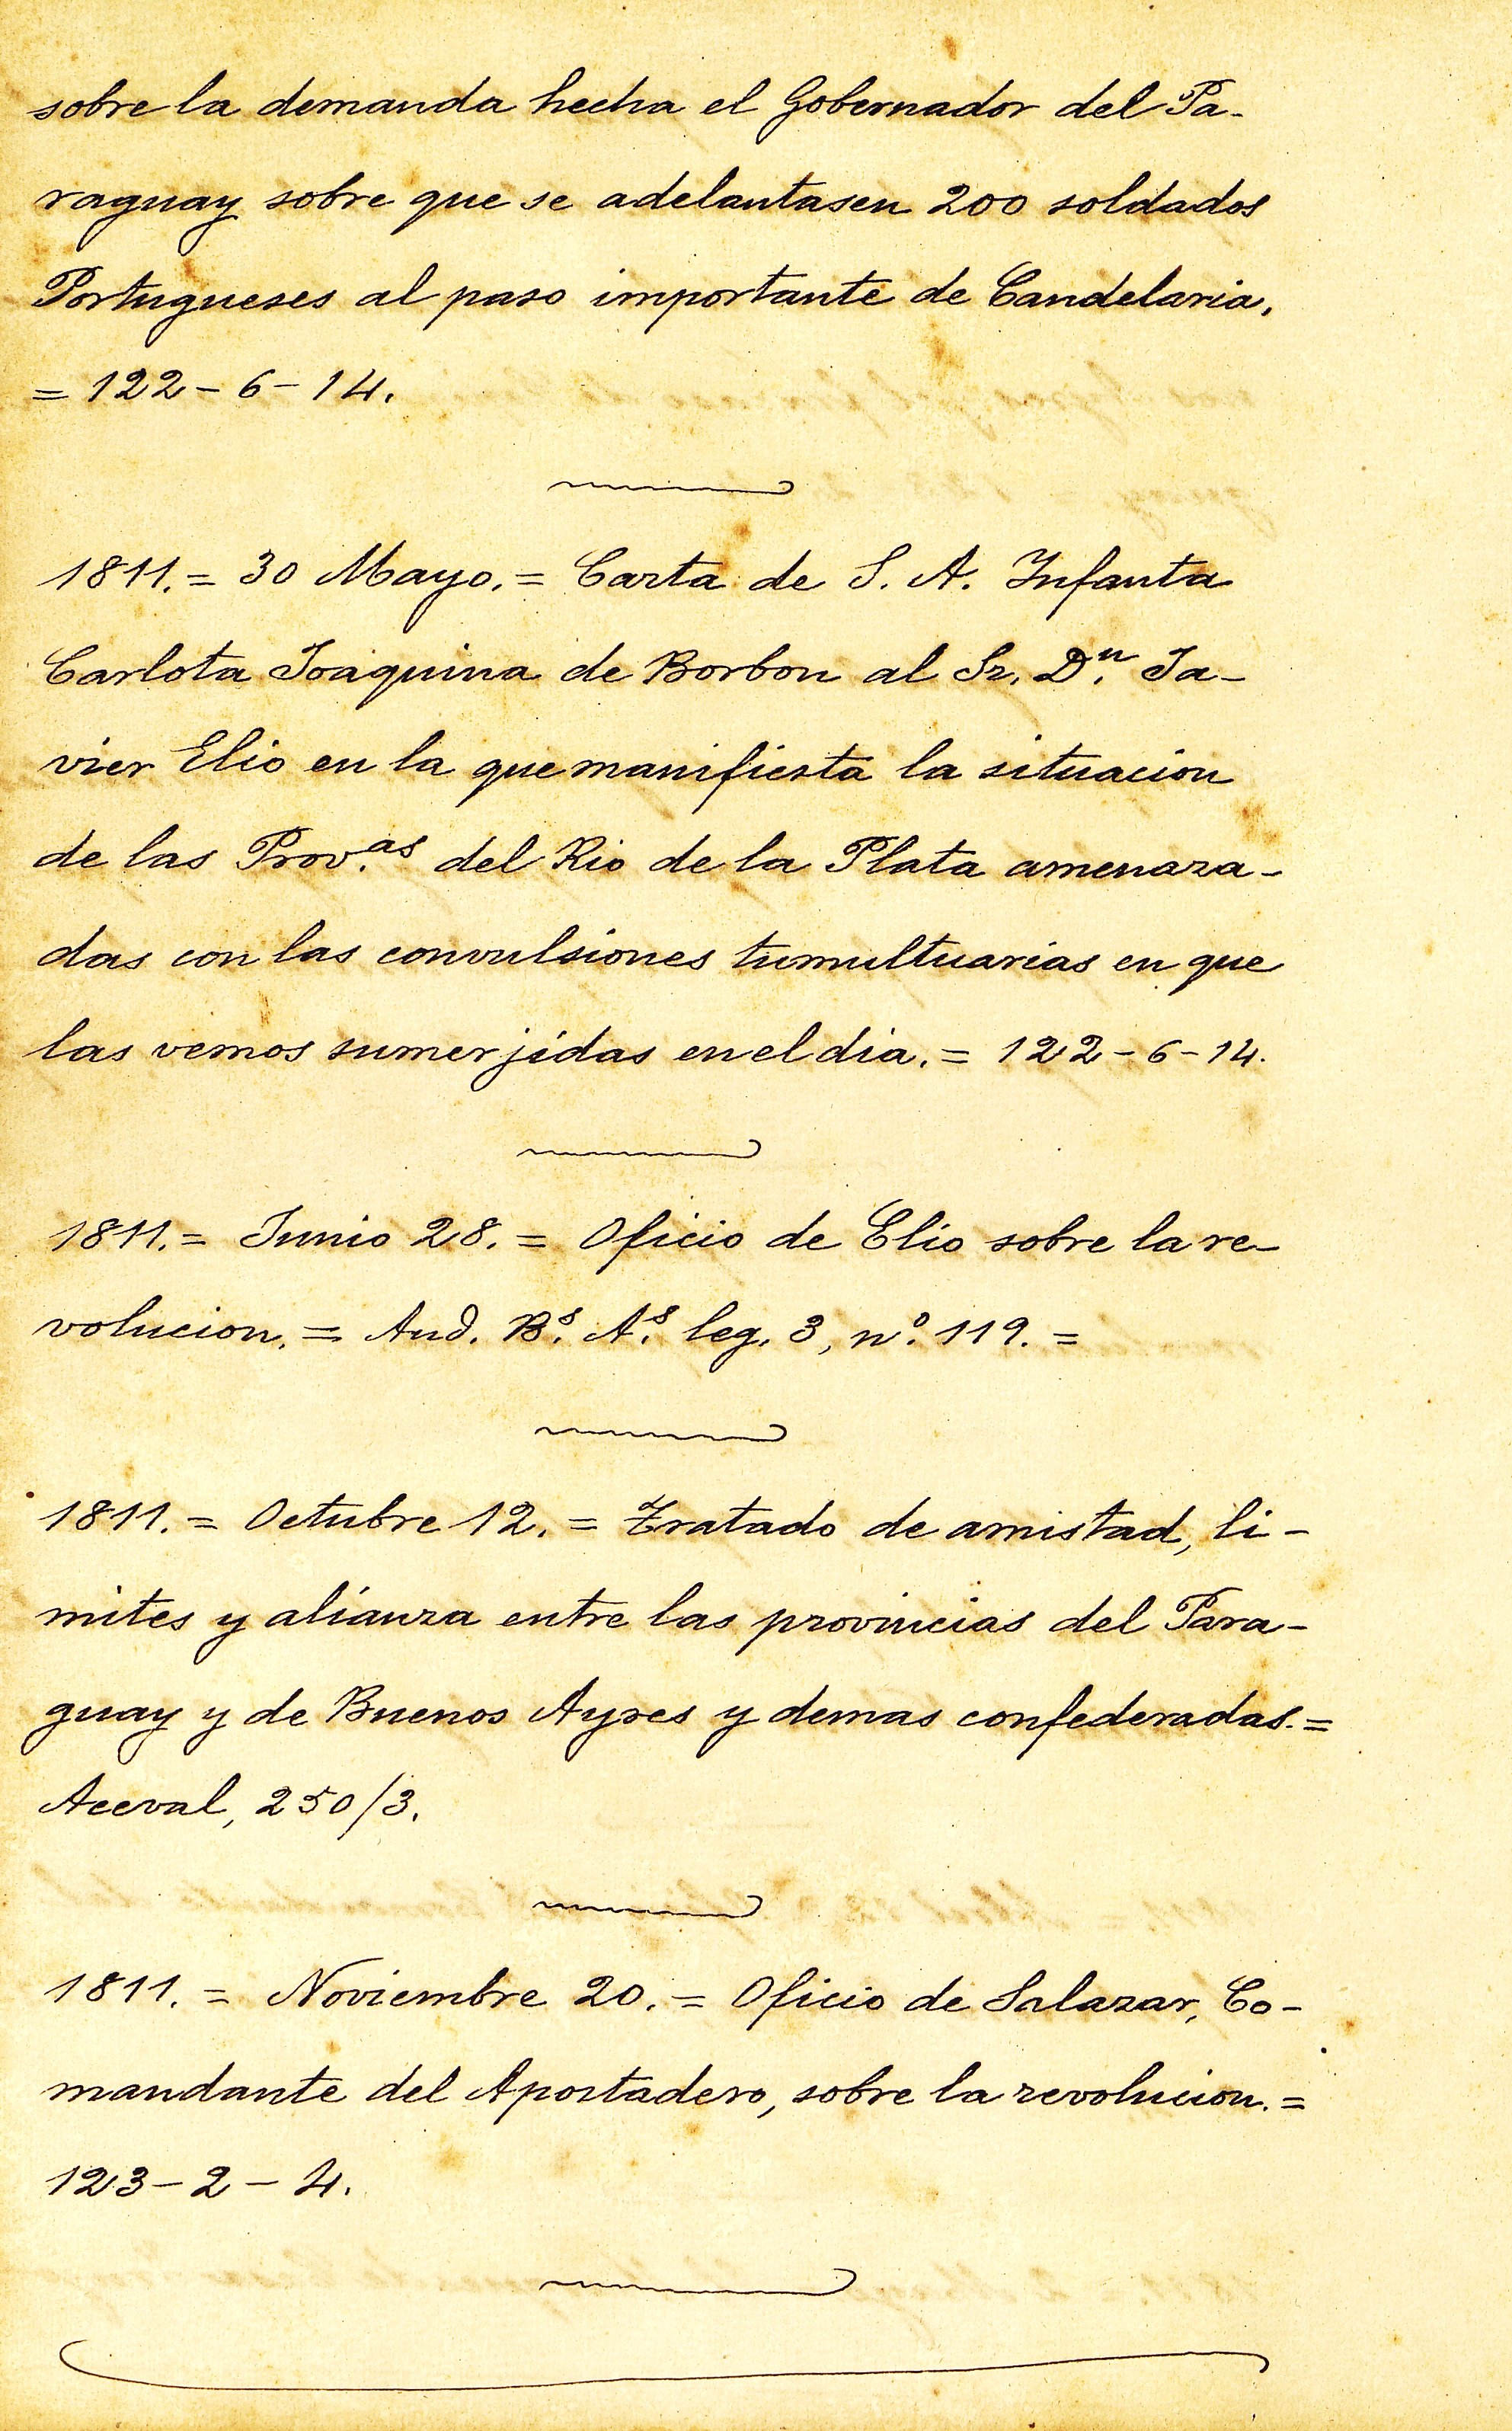 sobre la demanda hecha el Gobernador del Pa-
raguay sobre que se adelantasen 200 soldados
Portugueses al paso importante de Candelaria.
= 122-6-14.
1811. = 30 Mayo. = Carta de S. A. Infanta
Carlota Joaquina de Borbon al Sr. Dⁿ. Ja-
vier Elio en la que manifiesta la situacion
de las Prov.ᵃˢ del Rio de la Plata amenaza-
das con las convulsiones tumultuarias en que
las vemos sumerjidas en el dia. = 122-6-14.
1811. = Junio 28. = Oficio de Elio sobre la re-
volucion. = Aud. Bˢ. Aˢ. leg. 3, nº. 119. =
1811. = Octubre 12. = Tratado de amistad, li-
mites y alianza entre las provincias del Para-
guay y de Buenos Ayres y demas confederadas. =
Aceval, 250/3.
1811. = Noviembre 20. = Oficio de Salazar, Co-
mandante del Apostadero, sobre la revolucion. =
123-2-4.